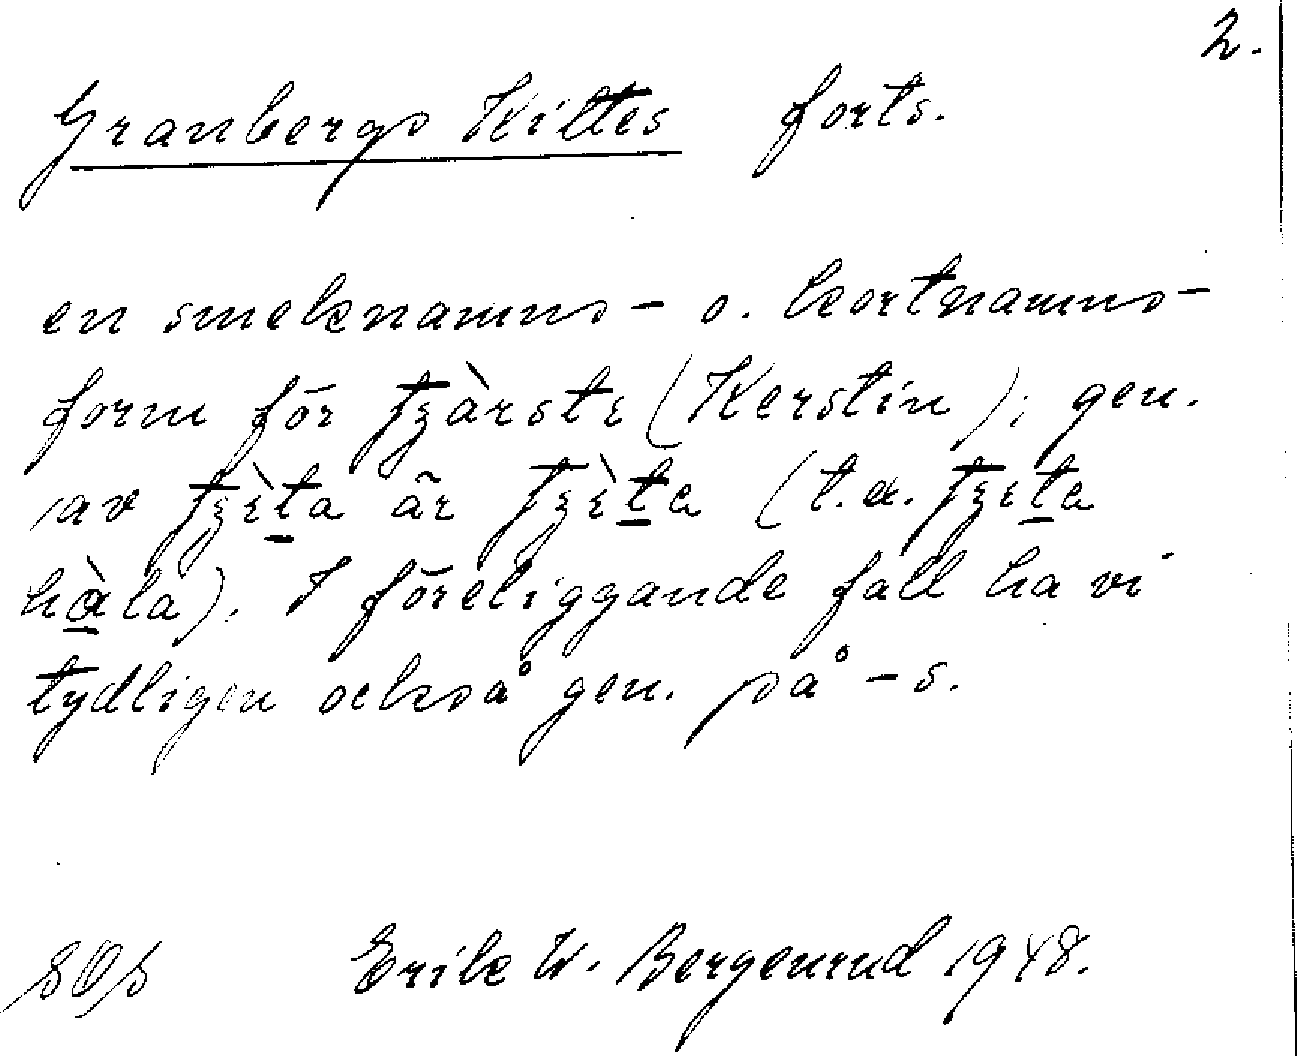 2.
Granbergs Kittes forts.
en smeknamns- o. kortnamns-
form för tʒàrstɛ (Kerstin); gen.
av tʒɛ̀ta är tʒɛ̀te (t.ex. tʒɛte
hàla). I föreliggande fall ha vi
tydligen också gen. på -s.
Erik W. Bergenrud 1948.